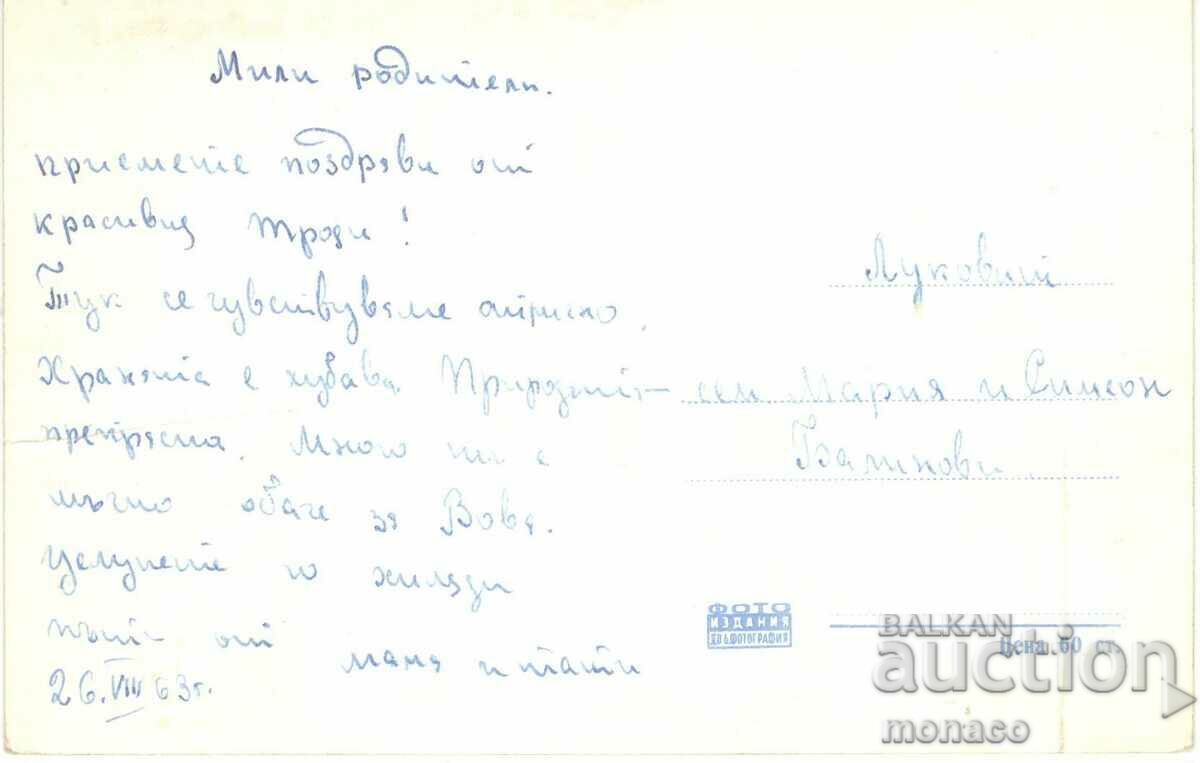 Мили родители.
приемете поздрави от
красивия Троян!
Тук се чувствуваме отлично.
Храната е хубава. Природата -
прекрасна. Много ни е
мъчно обаче за Вова.
Целунете го хиляди
пъти от мама и тати
26.VIII 63г.
Луковит
сем. Мария и Симеон
Балинови
ФОТО
ИЗДАНИЯ
ДП Б. ФОТОГРАФИЯ
Цена 60 ст.
BALKAN
auction
monaco